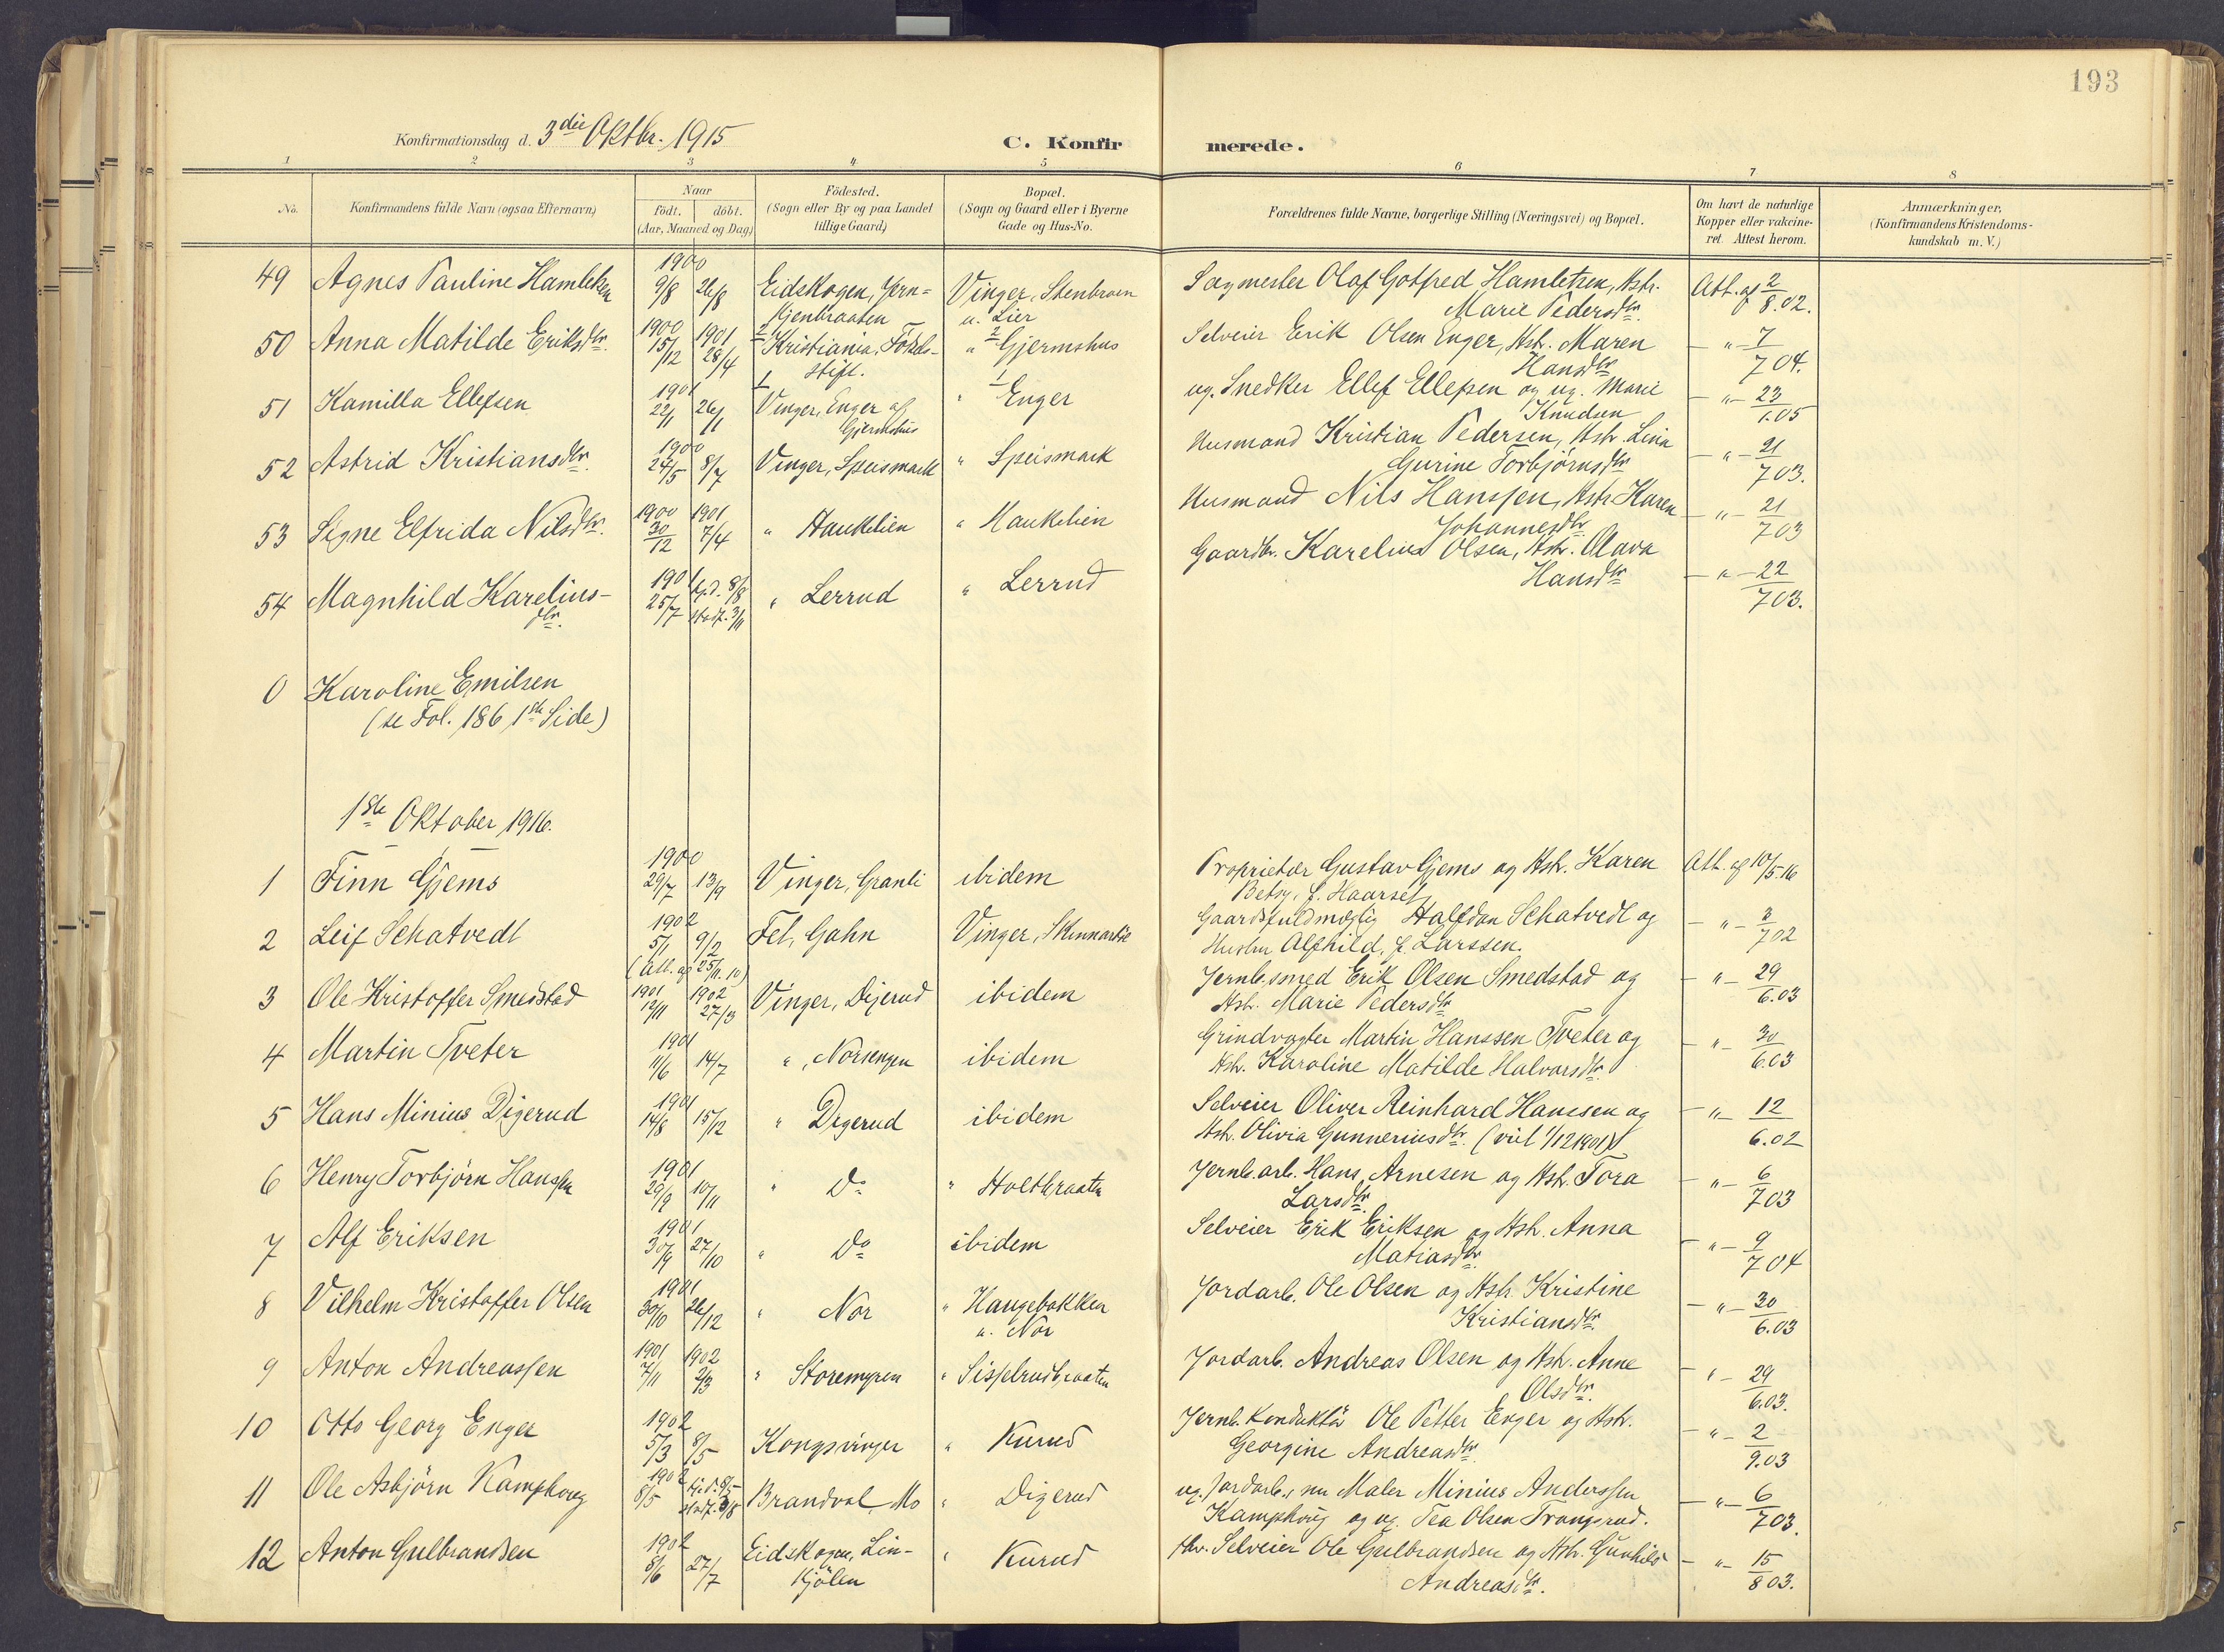 193
Konfirmationsdag d. 3die Oktbr. 1915
C. Konfirmerede.
1 2 3 4 5 6 7 8
No.
Konfirmandens fulde Navn (ogsaa Efternavn)
Naar
födt. döbt.
(Aar, Maaned og Dag)
Födested.
(Sogn eller By og paa Landet
tillige Gaard)
Bopæl.
(Sogn og Gaard eller i Byerne
Gade og Hus-No.
Forældrenes fulde Navne, borgerlige Stilling (Næringsvei) og Bopæl.
Om havt de naturlige
Kopper eller vakcine-
ret. Attest herom.
Anmærkninger.
(Konfirmandens Kristendoms-
kundskab m. V.)
49 Agnes Pauline Hamletsen 1900 9/8 26/8 Eidskogen, Vinger, Stenbroen u. Lier Sagmester Olaf Gotfred Hamletsen, Hstr. Marie Pedersdtr. Att. af 2/8.02.
50 Anna Matilde Eriksdtr. 1900 15/12 1901 28/4 Kristiania, Födsels- stift. " Gjermshus Selveier Erik Olsen Enger, Hstr. Maren Hansdtr. — " — 7/7 04.
51 Kamilla Ellefsen 1901 22/1 26/1 Vinger, Enger af Gjermshus " Enger ug. Snedker Ellef Ellefsen og ug. Marie Knudsen — " — 23/1.05
52 Astrid Kristiansdtr. 1900 24/5 8/7 Vinger, Speismark " Speismark Husmand Kristian Pedersen, Hstr. Lina Gurine Torbjörnsdtr. — " — 21/7 03.
53 Signe Elfrida Nilsdtr. 1900 30/12 1901 7/4 " Haukelien " Haukelien Husmand Nils Hanssen, Hstr. Karen Johannesdtr. — " — 21/7 03
54 Magnhild Kareliusdtr. 1901 25/7 hj.d. 8/8 stadf. 3/11 " Lerrud " Lerrud Gaardbr. Karelius Olsen, Hstr. Olava Hansdtr. — " — 22/7 03.
0 Karoline Emilsen
(se Fol. 186 1ste Side)
1ste Oktober 1916.
1 Finn Gjems 1900 29/7 13/9 Vinger, Granli ibidem Proprietær Gustav Gjems og Hstr. Karen Betsy, f. Haarset Att. af 10/5.16
2 Leif Schatvedt 1902 5/1 9/2 (Att. af 25/11.10) Fet, Gahn Vinger, Gaardsfuldmægtig Halfdan Schatvedt og Hustru Alfhild, f. Larssen. — " — /7 02
3 Ole Kristoffer Smedstad 1901 12/11 1902 27/3 Vinger, Digerud ibidem Jernb.smed Erik Olsen Smedstad og Hstr. Marie Pedersdtr. — " — 29/6.03
4 Martin Tveter 1901 11/6 14/7 " , Norsengen ibidem Grindvogter Martin Hanssen Tveter og Hstr. Karoline Matilde Halvorsdtr. — " — 30/6.03
5 Hans Minius Digerud 1901 14/8 15/12 " Digerud ibidem Selveier Oliver Reinhard Hanssen og Hstr. Olivia Gunneriusdtr. (viet 1/12 1901) — " — 12/6.02
6 Henry Torbjörn Hanssen 1901 29/9 10/11 " Do " Holtbraaten Jernb.arb. Hans Arnesen og Hstr. Tora Larsdtr. — " — 6/7 03
7 Alf Eriksen 1901 30/9 27/10 " Do ibidem Selveier Erik Eriksen og Hstr. Anna Matiasdtr. — " — 9/7 04
8 Vilhelm Kristoffer Olsen 1901 30/10 26/12 " Nor " Haugebakken u. Nor Jordarb. Ole Olsen og Hstr. Kristine Kristiansdtr. — " — 30/6.03
9 Anton Andreassen 1901 7/11 1902 2/3 " Storemyren " Sisselrudbraaten Jordarb. Andreas Olsen og Hstr. Anne Olsdtr. — " — 29/6.03.
10 Otto Georg Enger 1902 5/3 8/5 Kongsvinger " Kurud Jernb. Konduktör Ole Petter Enger og Hstr. Georgine Andreasdtr. — " — 2/9.03
11 Ole Asbjörn Kamphoug 1902 8/5 stadf. Brandval, Mo " Digerud ug. Jordarb., nu Maler Minius Anderssen Kamphoug og ug. Tea Olsen Trangsrud. — " — 6/7 03.
12 Anton Gulbrandsen 1902 8/6 27/7 Eidskogen, Lin- Kjölen " Kurud fhv. Selveier Ole Gulbrandsen og Hstr. Gunhild Andreasdtr. — " — 15/8 03.